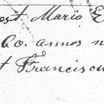 ost. Maria E
60. annos n
t Franciscu